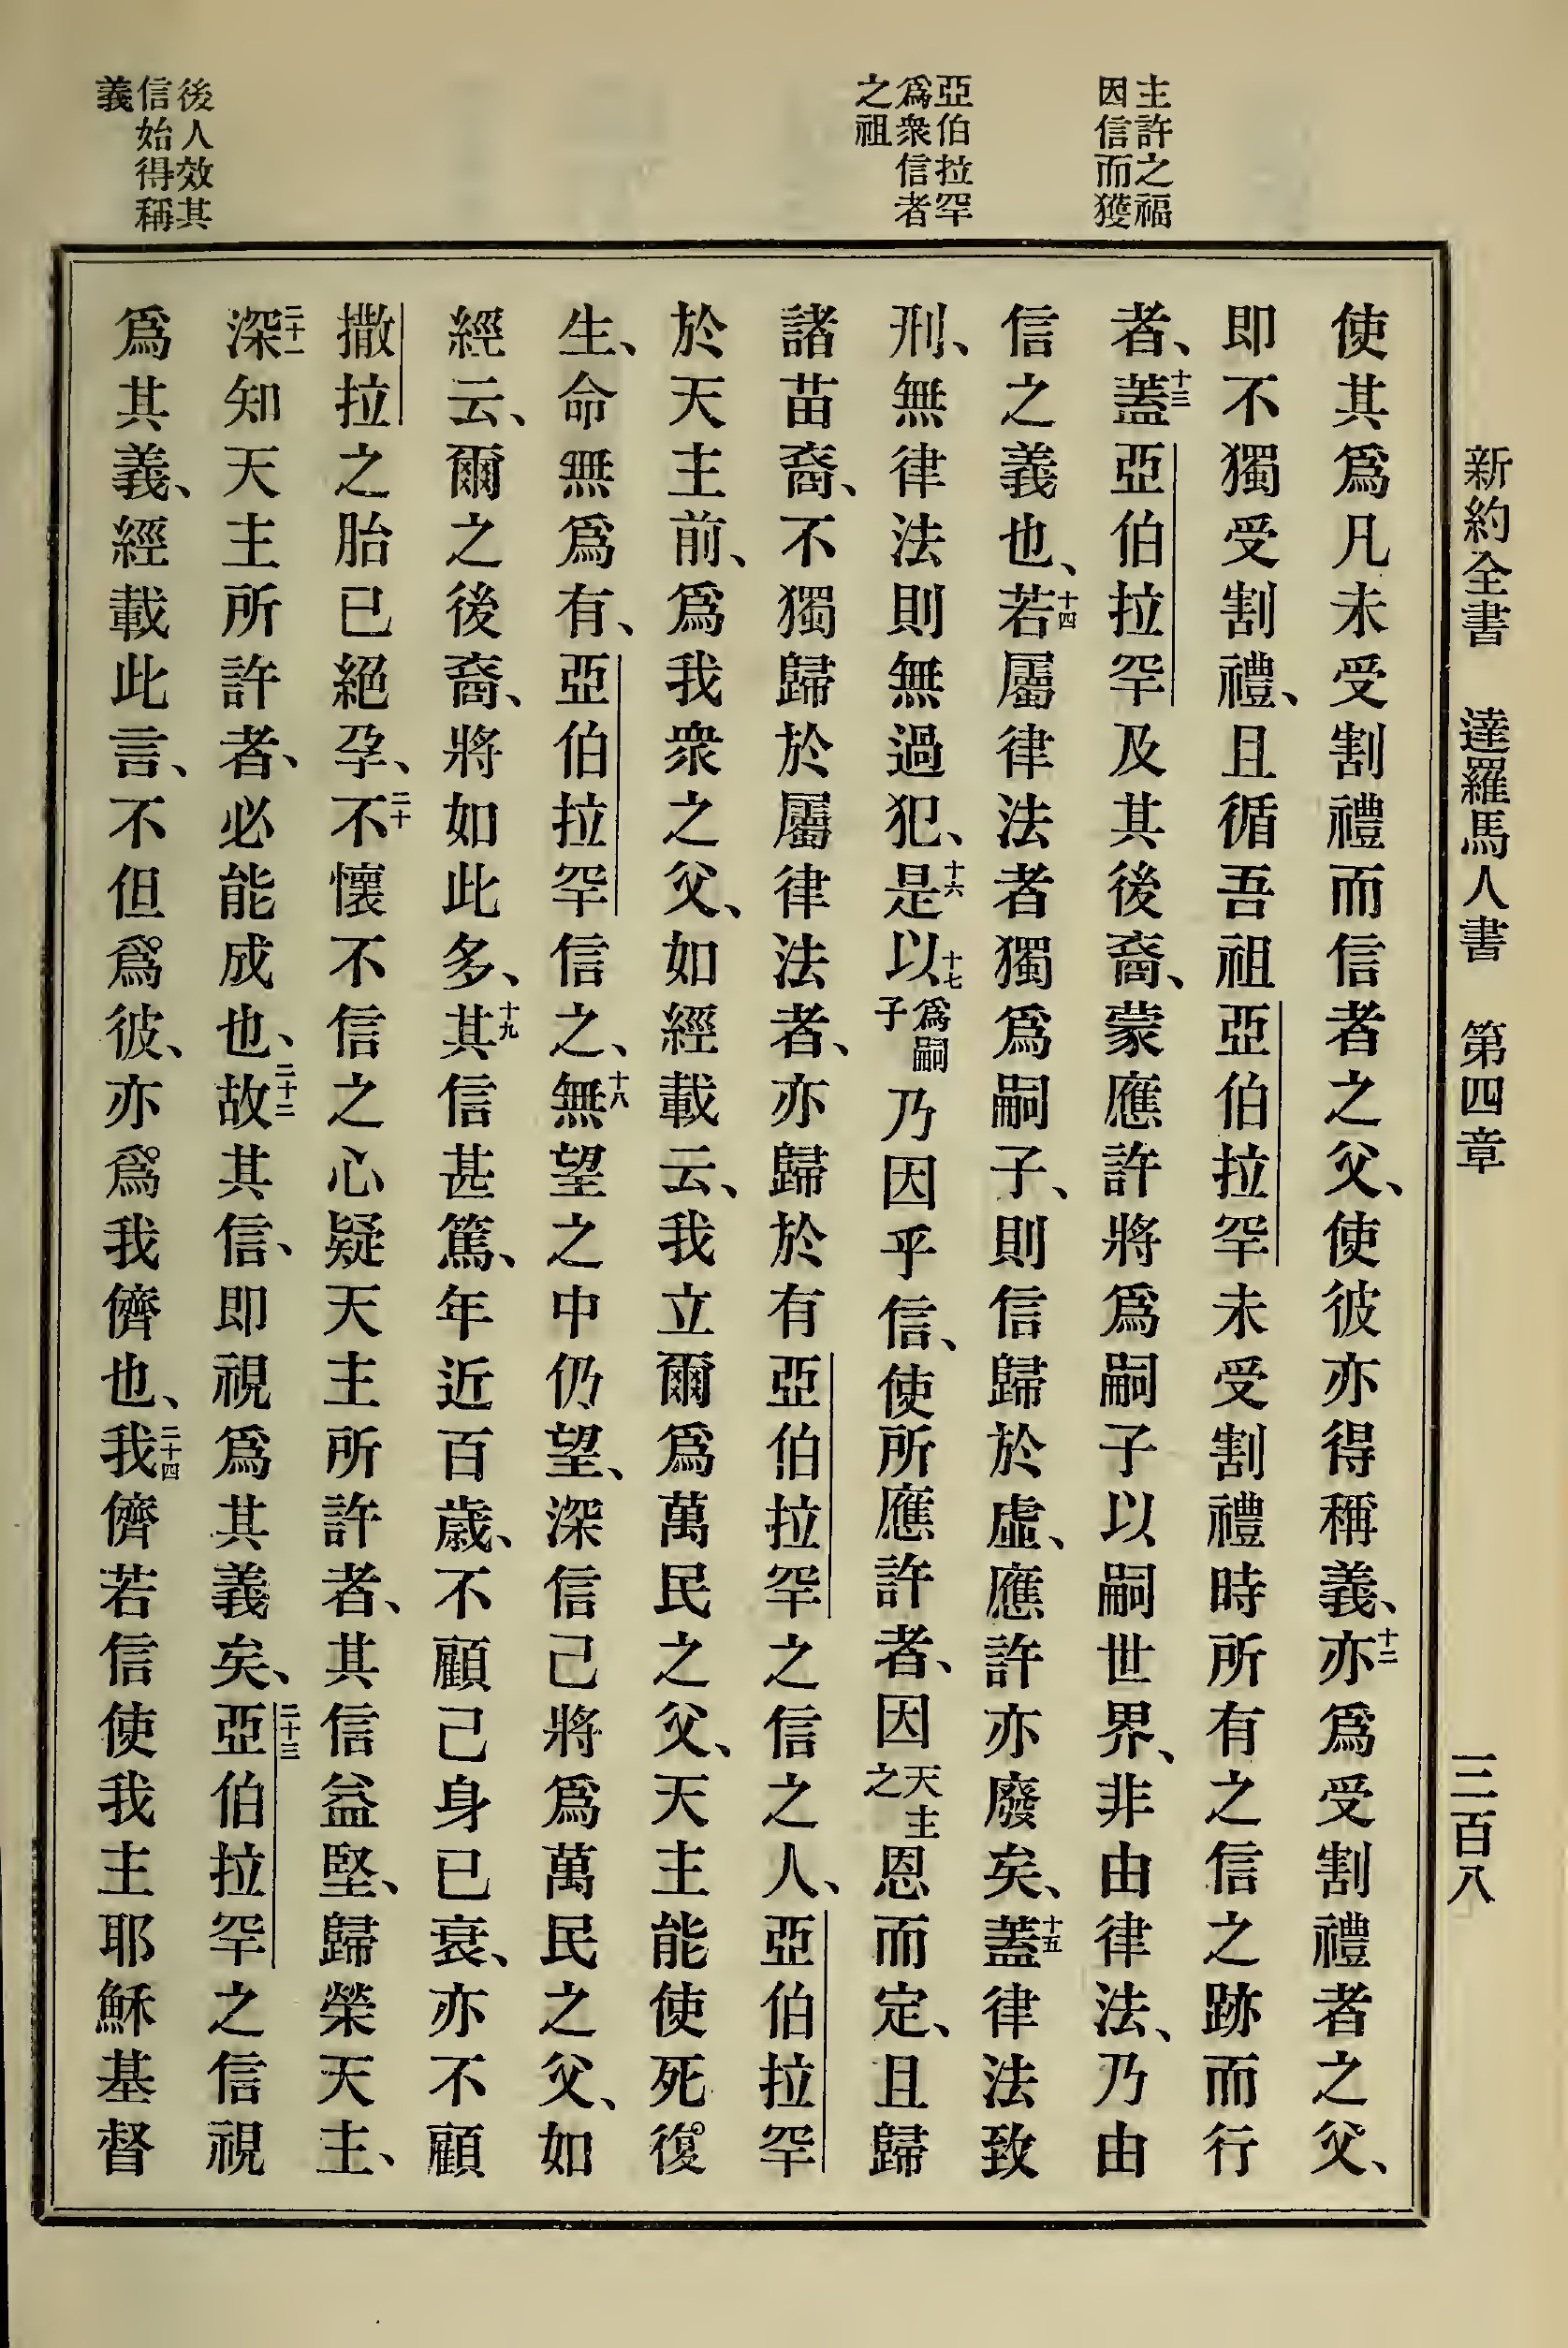 新約全書 達羅馬人書 第四章 三百八
主許之福
因信而獲
亞伯拉罕
爲衆信者
之祖
後人效其
信始得稱
義
使其爲凡未受割禮而信者之父、使彼亦得稱義、十二亦爲受割禮者之父、
即不獨受割禮、且循吾祖亞伯拉罕未受割禮時所有之信之跡而行
者、十三蓋亞伯拉罕及其後裔、蒙應許將爲嗣子以嗣世界、非由律法、乃由
信之義也、十四若屬律法者獨爲嗣子、則信歸於虛、應許亦廢矣、十五蓋律法致
刑、無律法則無過犯、十六是以十七爲嗣子乃因乎信、使所應許者、因天主之恩而定、且歸
諸苗裔、不獨歸於屬律法者、亦歸於有亞伯拉罕之信之人、亞伯拉罕
於天主前、爲我衆之父、如經載云、我立爾爲萬民之父、天主能使死復
生、命無爲有、亞伯拉罕信之、十八無望之中仍望、深信己將爲萬民之父、如
經云、爾之後裔、將如此多、十九其信甚篤、年近百歲、不顧己身已衰、亦不顧
撒拉之胎已絕孕、二十不懷不信之心疑天主所許者、其信益堅、歸榮天主、
二十一深知天主所許者、必能成也、二十二故其信、即視爲其義矣、二十三亞伯拉罕之信視
爲其義、經載此言、不但爲彼、亦爲我儕也、二十四我儕若信使我主耶穌基督